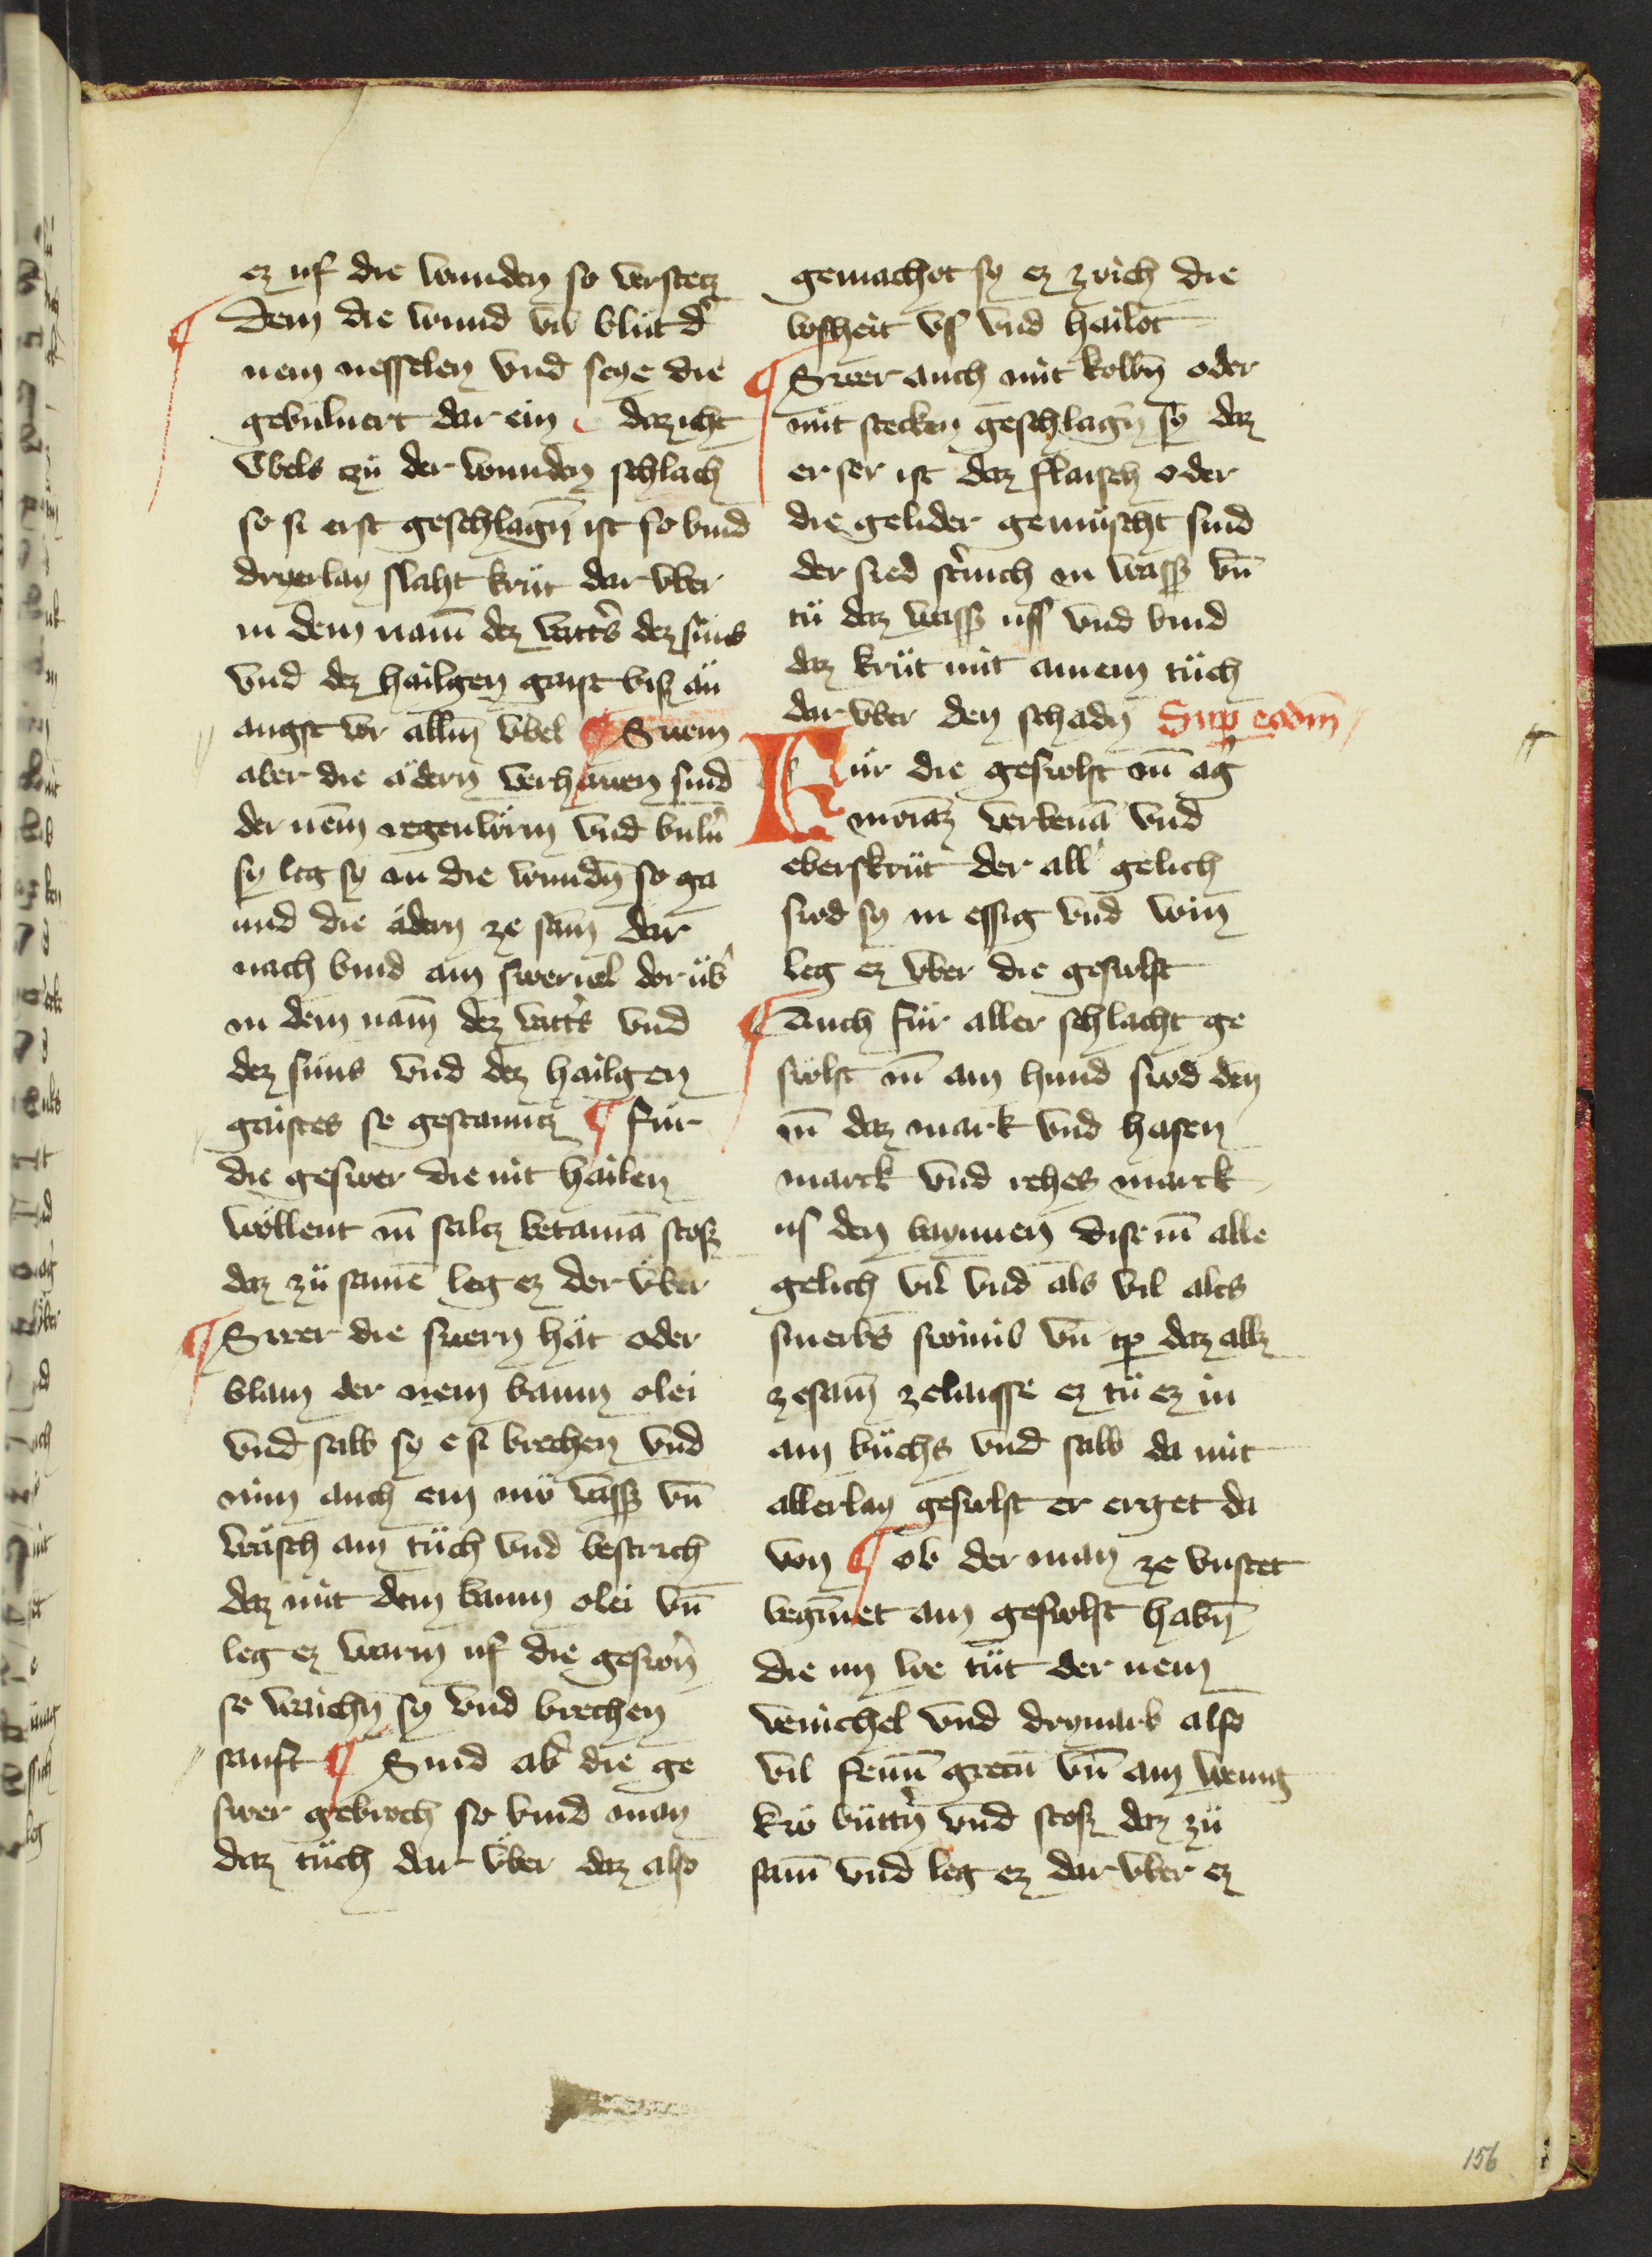 ez uf die wunden so verstetz
¶ Dem die wund vil blüt d'
nem nesselen vnd sege die
gebuluert dar ein daz icht
vbels zü der wunden schlach
so si erst geschlagn̄ ist so bind
dryerlay slaht krüt dar vber
in dem nam̄ dez vatt's dez süns
vnd dez hailgen gaist bis än
angst vor alln̄ vbel ¶ Swem
aber die ädern verhawen sind
der nem̄ regenwürm vnd buluer
sy leg sy an die wundn̄ so ga
und die ädern ze sam̄ dar
nach bind ain sweruel dorüb'
in dem nam̄ dez vatt's vnd
dez süns vnd dez hailgen
gaistes so gestanntz ¶ für
die geswer die nit hailen
wöllent nı̄ saltz betaniā stosz
daz zü samē leg ez dor vber
¶ Swer die swern hät oder
blam der nem baum olei
vnd salb sy e si brechen vnd
nim auch ein niw wassz vn̄
wäsch ain tüch vnd bestrich
daz mit dem baum olei vn̄
leg ez warm uf die geswer̄n
so waichn̄ sy vnd brechen
sanft ¶ Sind ab' die ge
swer gebroch so bind man
daz tüch dar vber daz also
gemachot sy ez zvich die
bosheit vs vnd hailot
¶ Swer auch mit kolbn̄ oder
mit stecken geschlagn̄ sy daz
er ser ist daz flaisch oder
die gelider gemüscht sind
der sied in wassz vn̄
tü daz wassz uss vnd bind
daz krüt mit ainem tüch
dar vber den schadn̄ Sup eodm̄
Für die geswlst nı̄ ag
moniā verbenā vnd
eberskrüt der all' gelich
swd sy in essig vnd win̄
leg ez vber die geswlst
¶ Auch für aller schlacht ge
swlst nı̄ ain hund swd den
nı̄ daz mark vnd hasen
marck vnd rehes marck
us den baynnen dise nı̄ alle
gelich vil vnd als vil alts
smerbs swinis vn̄ daz allz
zesam̄ zelaisse ez tü ez in
ain büchs vnd salb da mit
allerlay geswlst er erget da
von ¶ ob der man ze
beginnet ain geswlst habn̄
die im we tüt der nem
venichel vnd drymark also
vil fenū grecū vn̄ ain wenig
küw büttn̄ vnd stosz daz zü
sam̄ vnd leg ez dar vber ez
156